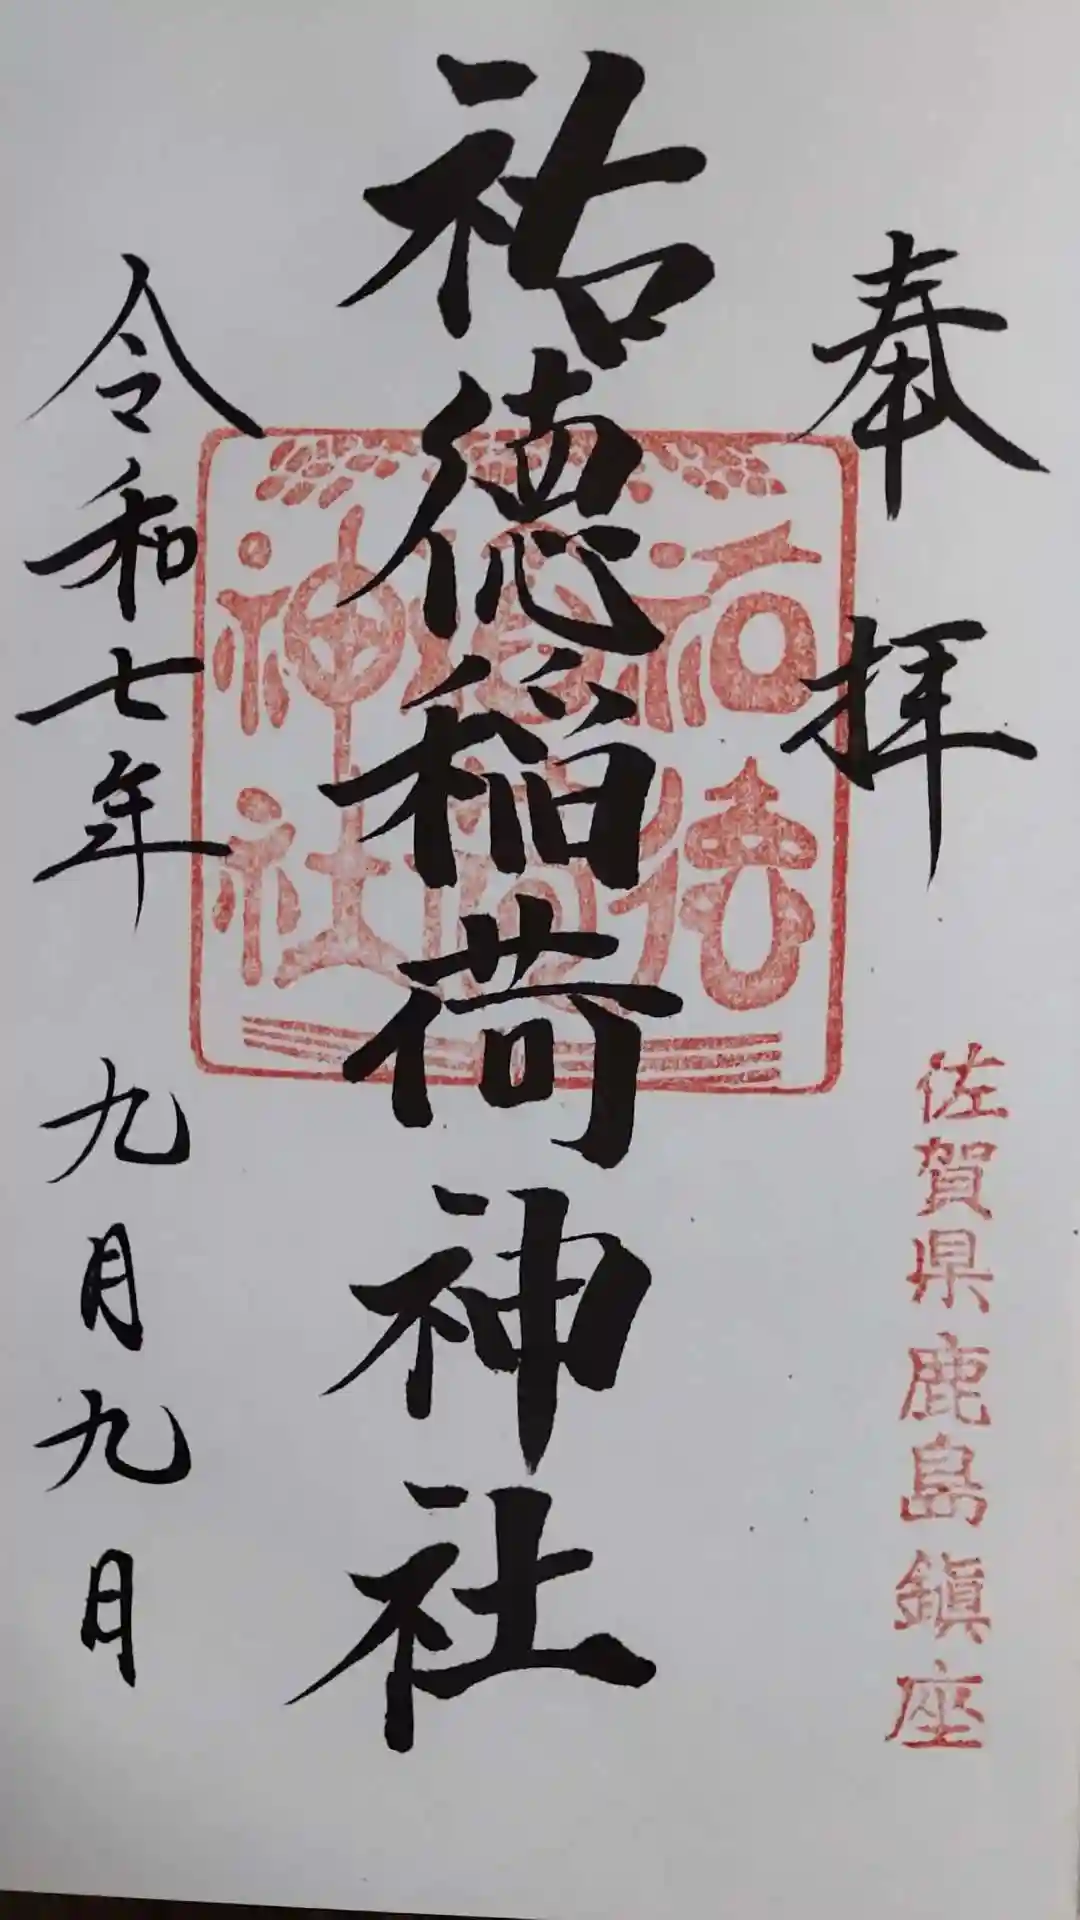 奉拝
佐賀県鹿島鎮座
祐徳稲荷神社
祐徳稲荷神社
令和七年九月九日